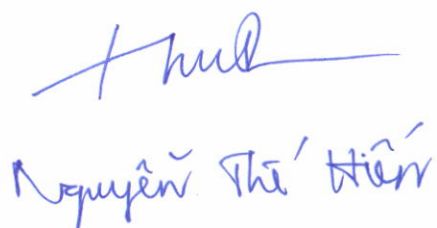 Nguyễn Thế Hiển